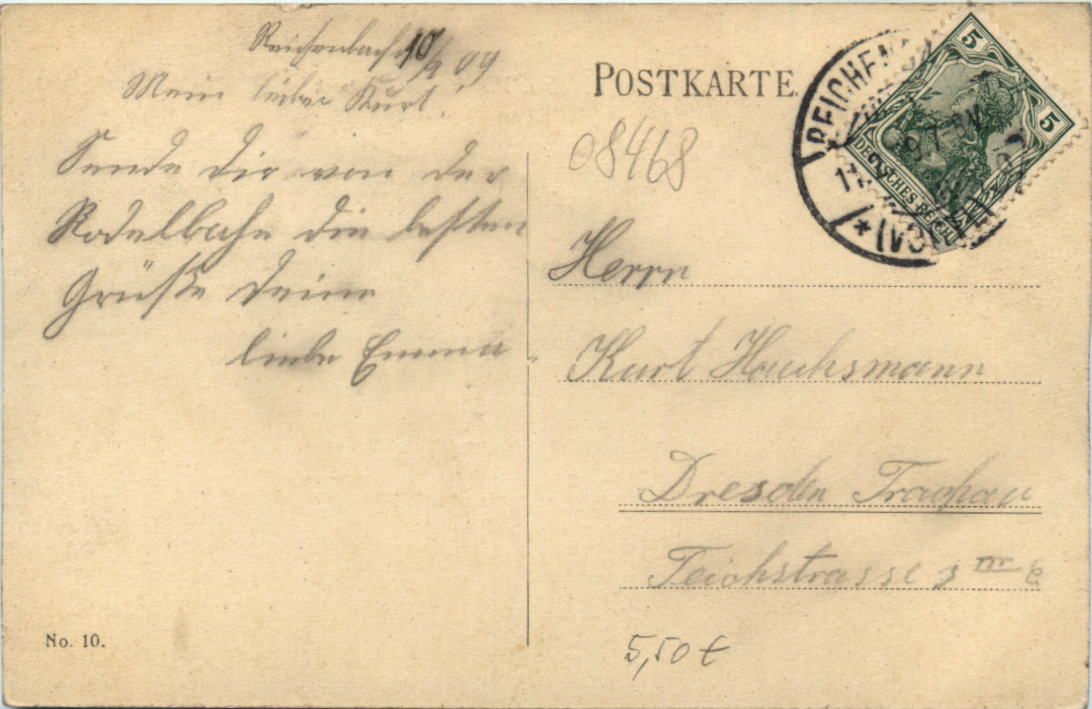 Reichenbach 10/2 09
Mein lieber Kurt!
Sende Dir von der
Rodelbahn die besten
Grüße Deine
liebe Emma
No. 10.
POSTKARTE.
08468
5
5
DEUTSCHES REICH
REICHENBA
*(VOGTL
Herrn
Kurt
Dresden Trachau
Teichstrasse 3 III
5,50 €